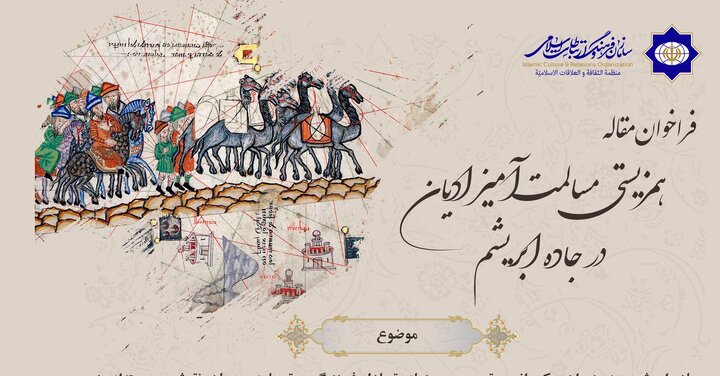 سازمان فرهنگ و ارتباطات اسلامی
Islamic Culture & Relations Organization
منظمة الثقافة و العلاقات الاسلامية
فراخوان مقاله
همزیستی مسالمت آمیز ادیان
در جاده ابریشم
موضوع